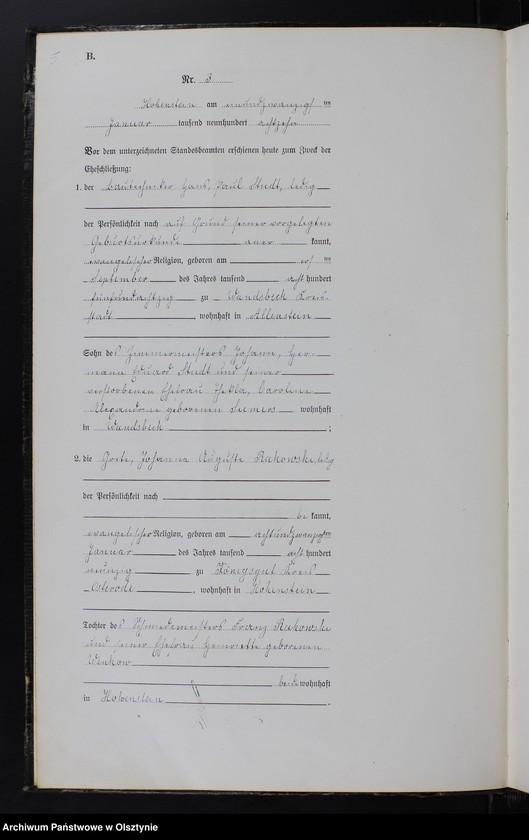 B.
Nr. 3
Hohenstein am neunundzwanzigsten
Januar tausend neunhundert achtzehn
Vor dem unterzeichneten Standesbeamten erschienen heute zum Zweck der
Eheschließung:
1. der Bautechniker Hans, Paul Studt, ledig
der Persönlichkeit nach auf Grund seiner vorgelegten
Geburtsurkunde aner kannt,
evangelischer Religion, geboren am ten
September des Jahres tausend acht hundert
fünfundachtzig zu Wandsbeck Kreis
stadt, wohnhaft in Allenstein
Sohn des Zimmermeisters Johann, Her-
mann Eduard Studt und seiner
verstorbenen Ehefrau Thekla, Caroline
Alexandrine geborenen Siemers wohnhaft
in Wandsbeck ;
2. die Grete, Johanna Auguste Rakowski, ledig
der Persönlichkeit nach
be kannt,
evangelischer Religion, geboren am achtundzwanzigsten
Januar des Jahres tausend acht hundert
neunzig zu Königsgut Kreis
Osterode, wohnhaft in Hohenstein
Tochter des Schmiedemeisters Franz Rakowski
und seiner Ehefrau Henriette geborenen
beide wohnhaft
in Hohenstein .
Archiwum Państwowe w Olsztynie